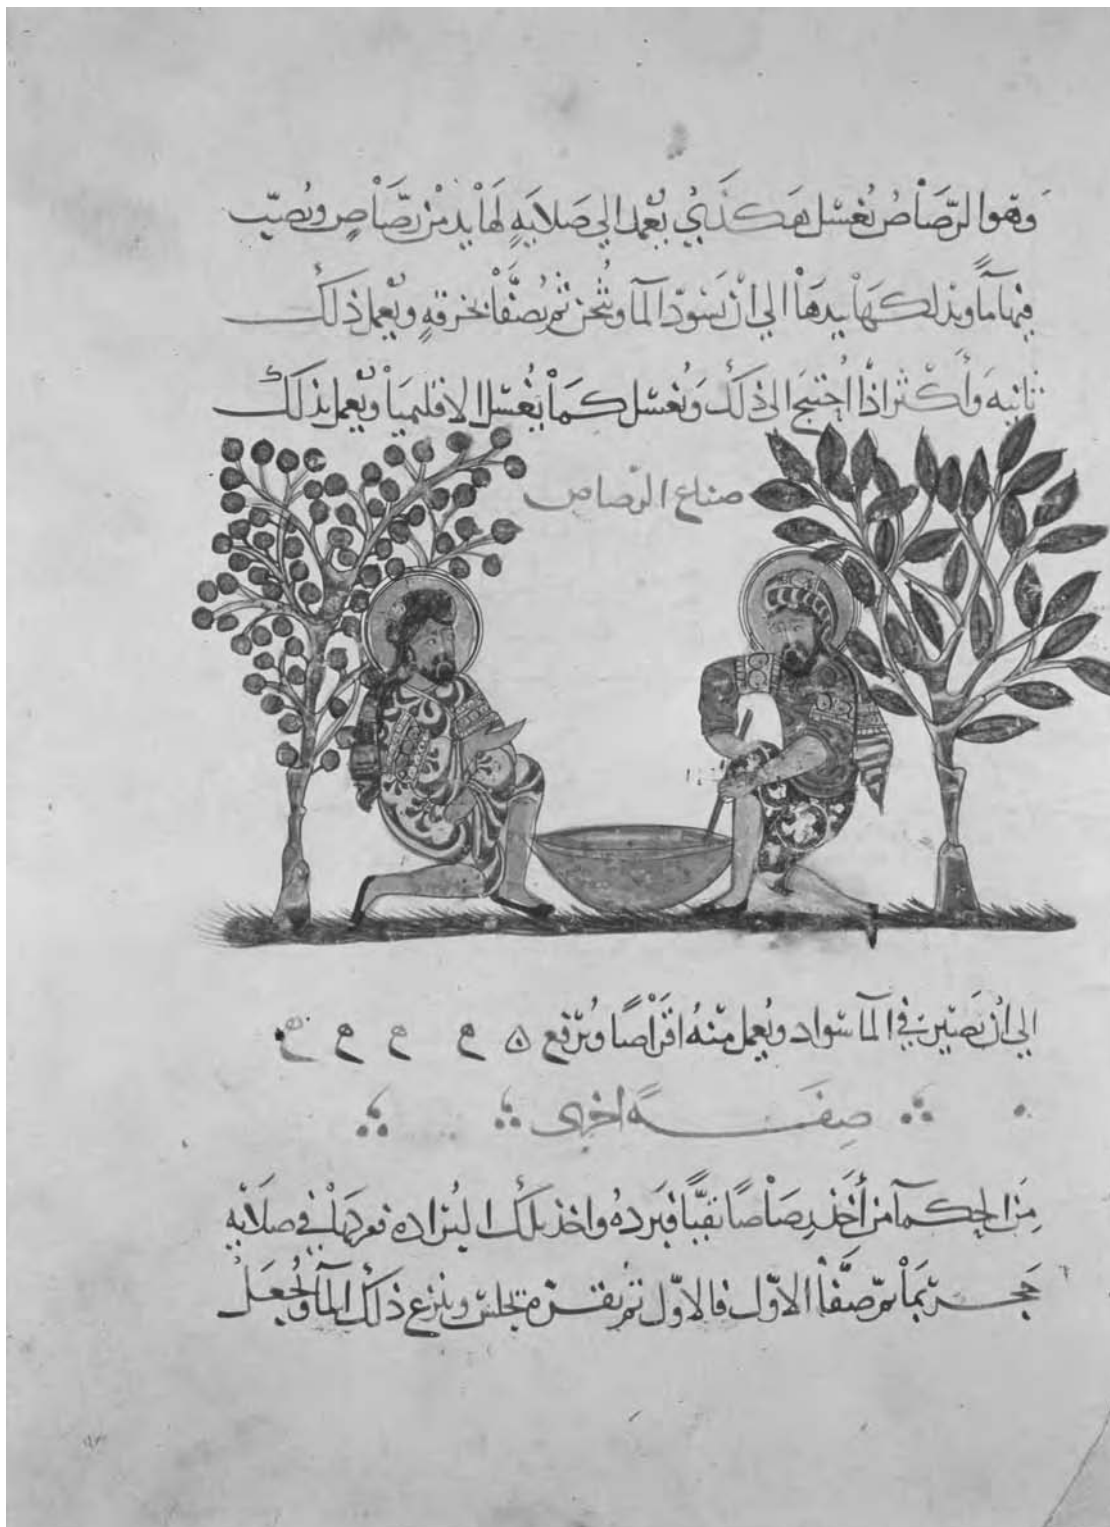 وهو الرَّصَاصُ يُغسَل هَكَذَي يُعْمد الي صَلايَةٍ لَهَا يد مِنْ رَصَاصٍ ويُصَبّ
فيها مآً ويدلكهَا بيدهَا الي انْ يَسْودّ المآ ويثخن ثم يُصَفَّا بخرقةٍ ويُعمل ذلك
ثانيه وَأكْثر اذَا اُحتيج الى ذَلك وَيُغسَل كمَا يُغْسَل الاقليميَا ويُعمل بذلك
صناع الرّصاص
الي أن يَصير في المآ سواد ويُعمل منهُ اقرَاصًا ويُرفع
صِفَــةً اخرى
مِنَ الحكمآ من أَخَذَ رصَاصًا نقيًّا فبَردهُ واخذ تلك البُرَاده فعركهَا في صلايه
حَجر بمَا ثم صَفَّا الاوّل فالاوّل ثم تركه يجلس وينزع ذلك المآ ويُجعَل